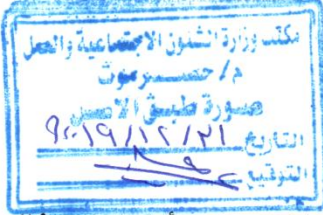 مكتب وزارة الشئون الاجتماعية والعمل
م/حضـــرموت
صورة طبق الاصل
التاريخ ٢١/١٢/٢٠١٩
التوقيع